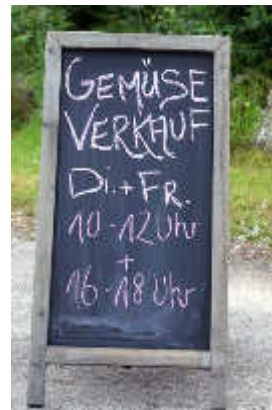 GEMÜSE
VERKAUF
Di. + FR.
10 - 12 Uhr
+
16 - 18 Uhr